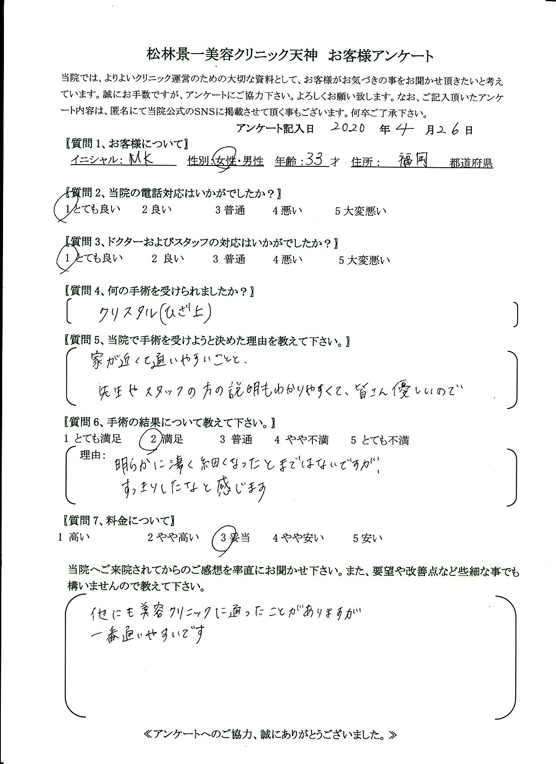 松林景一美容クリニック天神　お客様アンケート
当院では、よりよいクリニック運営のための大切な資料として、お客様がお気づきの事をお聞かせ頂きたいと考え
ています。誠にお手数ですが、アンケートにご協力下さい。よろしくお願い致します。なお、ご記入頂いたアンケ
ート内容は、匿名にて当院公式のSNSに掲載させて頂く事もございます。何卒ご了承下さい。
アンケート記入日　2020　年　4　月 26 日
〖質問1、お客様について〗
イニシャル：MK　性別：女性・男性　年齢：33 才　住所：　福岡　都道府県
〖質問2、当院の電話対応はいかがでしたか？〗
1 とても良い　2 良い　3 普通　4 悪い　5 大変悪い
〖質問3、ドクターおよびスタッフの対応はいかがでしたか？〗
1 とても良い　2 良い　3 普通　4 悪い　5 大変悪い
〖質問4、何の手術を受けられましたか？〗
クリスタル(ひざ上)
〖質問5、当院で手術を受けようと決めた理由を教えて下さい。〗
家が近くて通いやすいことと、
先生やスタッフの方の説明もわかりやすくて、皆さん優しいので
〖質問6、手術の結果について教えて下さい。〗
1 とても満足　2 満足　3 普通　4 やや不満　5 とても不満
理由：
明らかに凄く細くなったとまではないですが、
すっきりしたなと感じます
〖質問7、料金について〗
1 高い　2 やや高い　3 妥当　4 やや安い　5 安い
当院へご来院されてからのご感想を率直にお聞かせ下さい。また、要望や改善点など些細な事でも
構いませんので教えて下さい。
他にも美容クリニックに通ったことがありますが
一番通いやすいです
≪アンケートへのご協力、誠にありがとうございました。≫